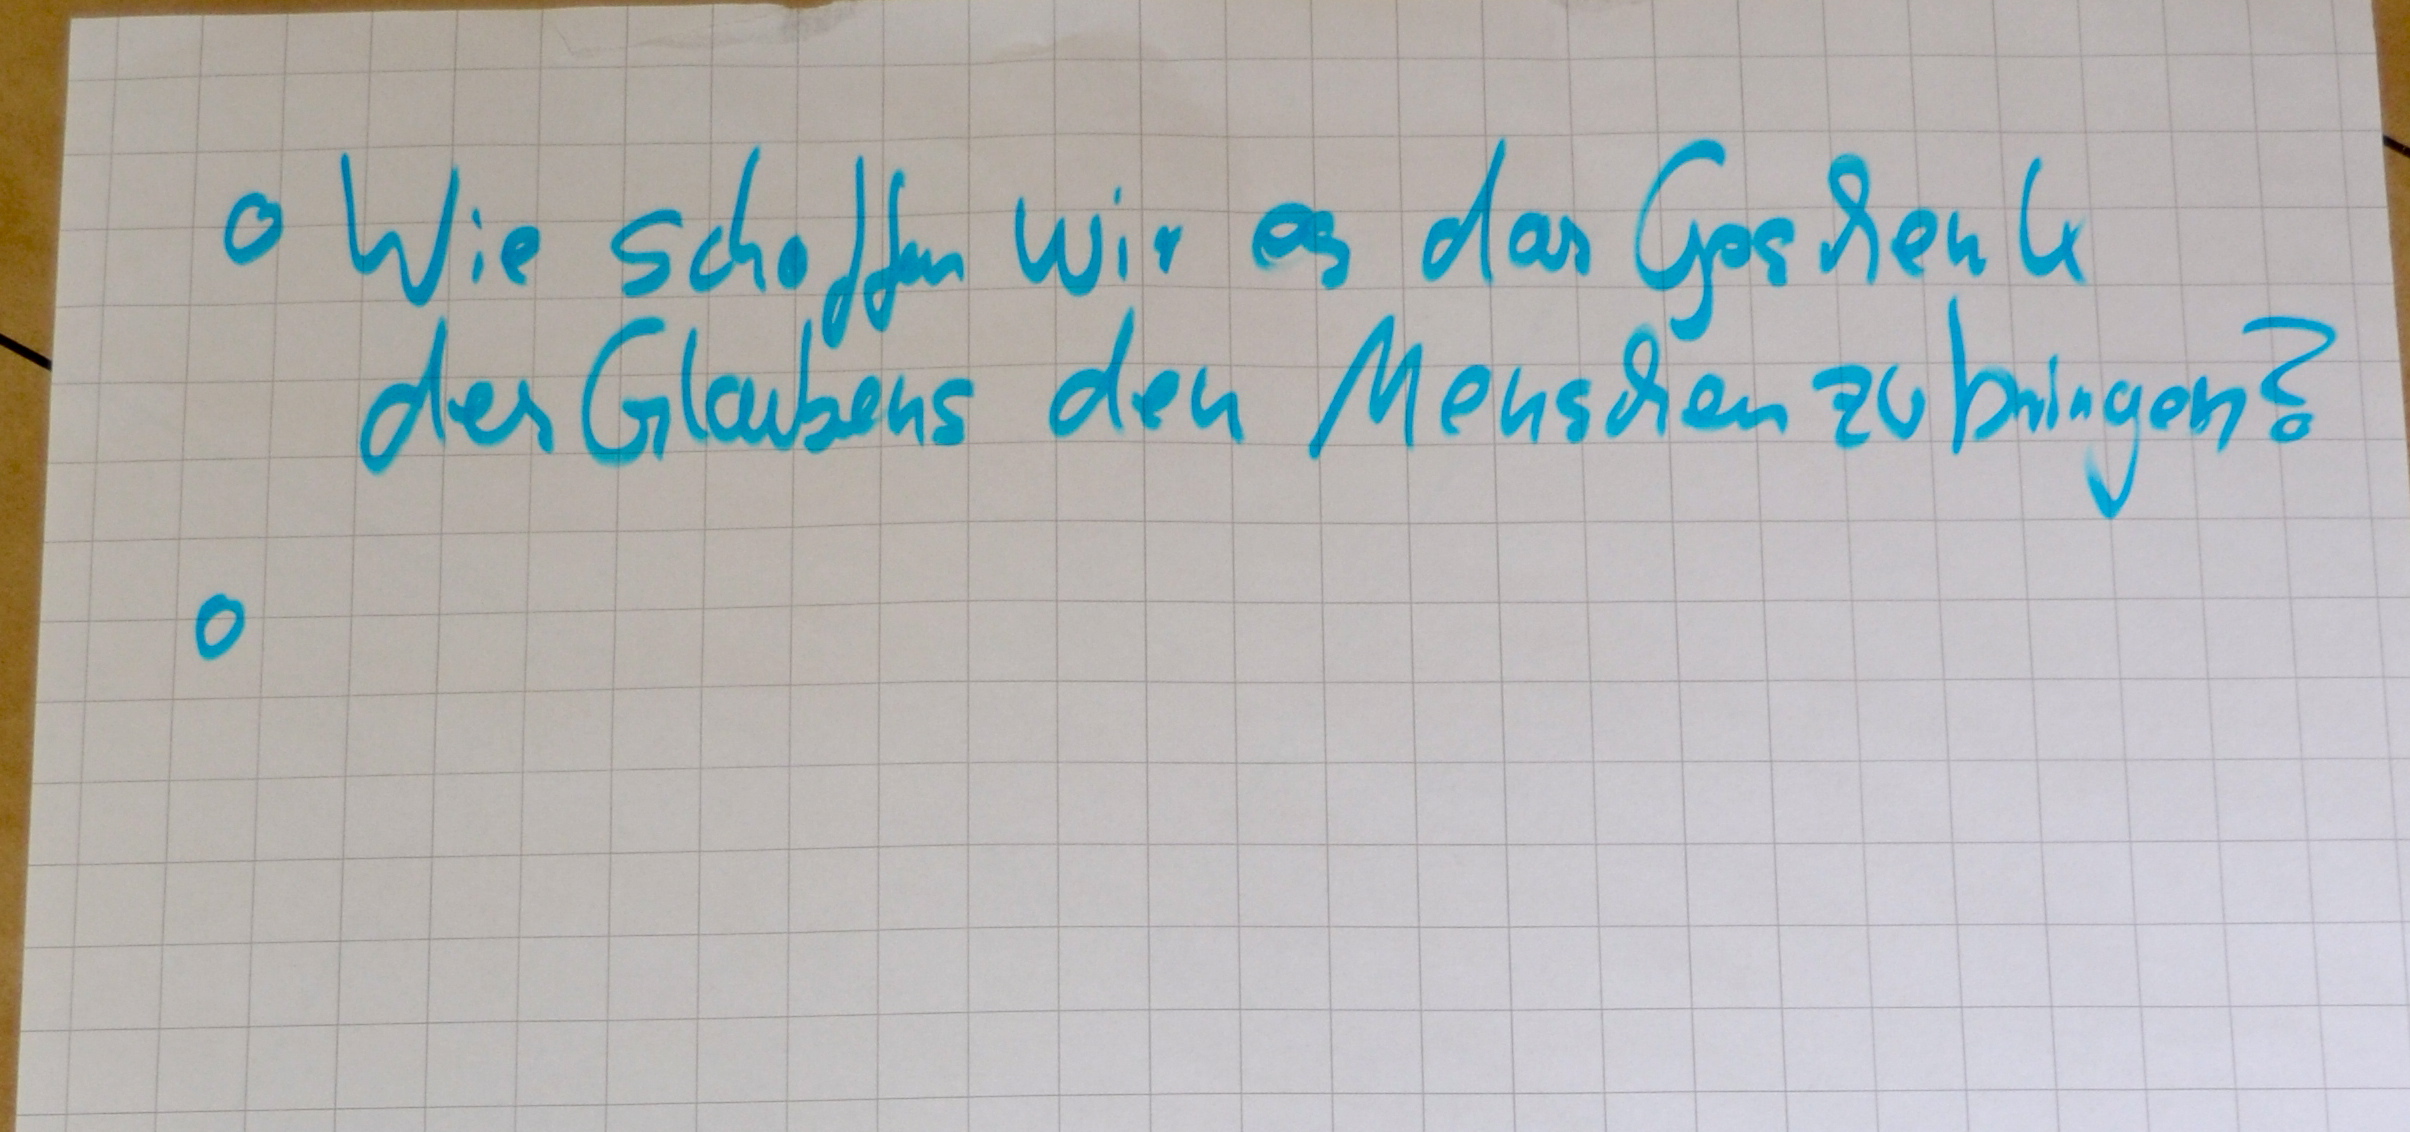 o Wie schaffen wir es das Geschenk
des Glaubens den Menschen zu bringen?
o